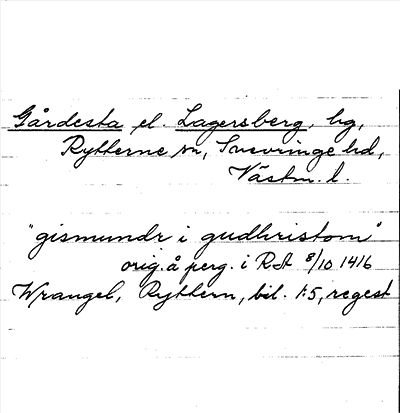 Gårdesta el. Lagersberg, hg,
Rytterne sn, Snevringe hd,
Västm. l.
"gismundr i gudhristom"
orig. å perg. i RA 8/10 1416
Wrangel, Ryttern, bil. 1:5, regest